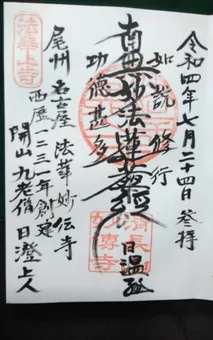 令和四年七月二十四日 参拝
如説修行
南無妙法蓮華経
日温
功徳甚多
法華道場
尾州 名古屋 法華 妙伝寺
西暦一二三一年創建
開山 九老僧 日澄上人